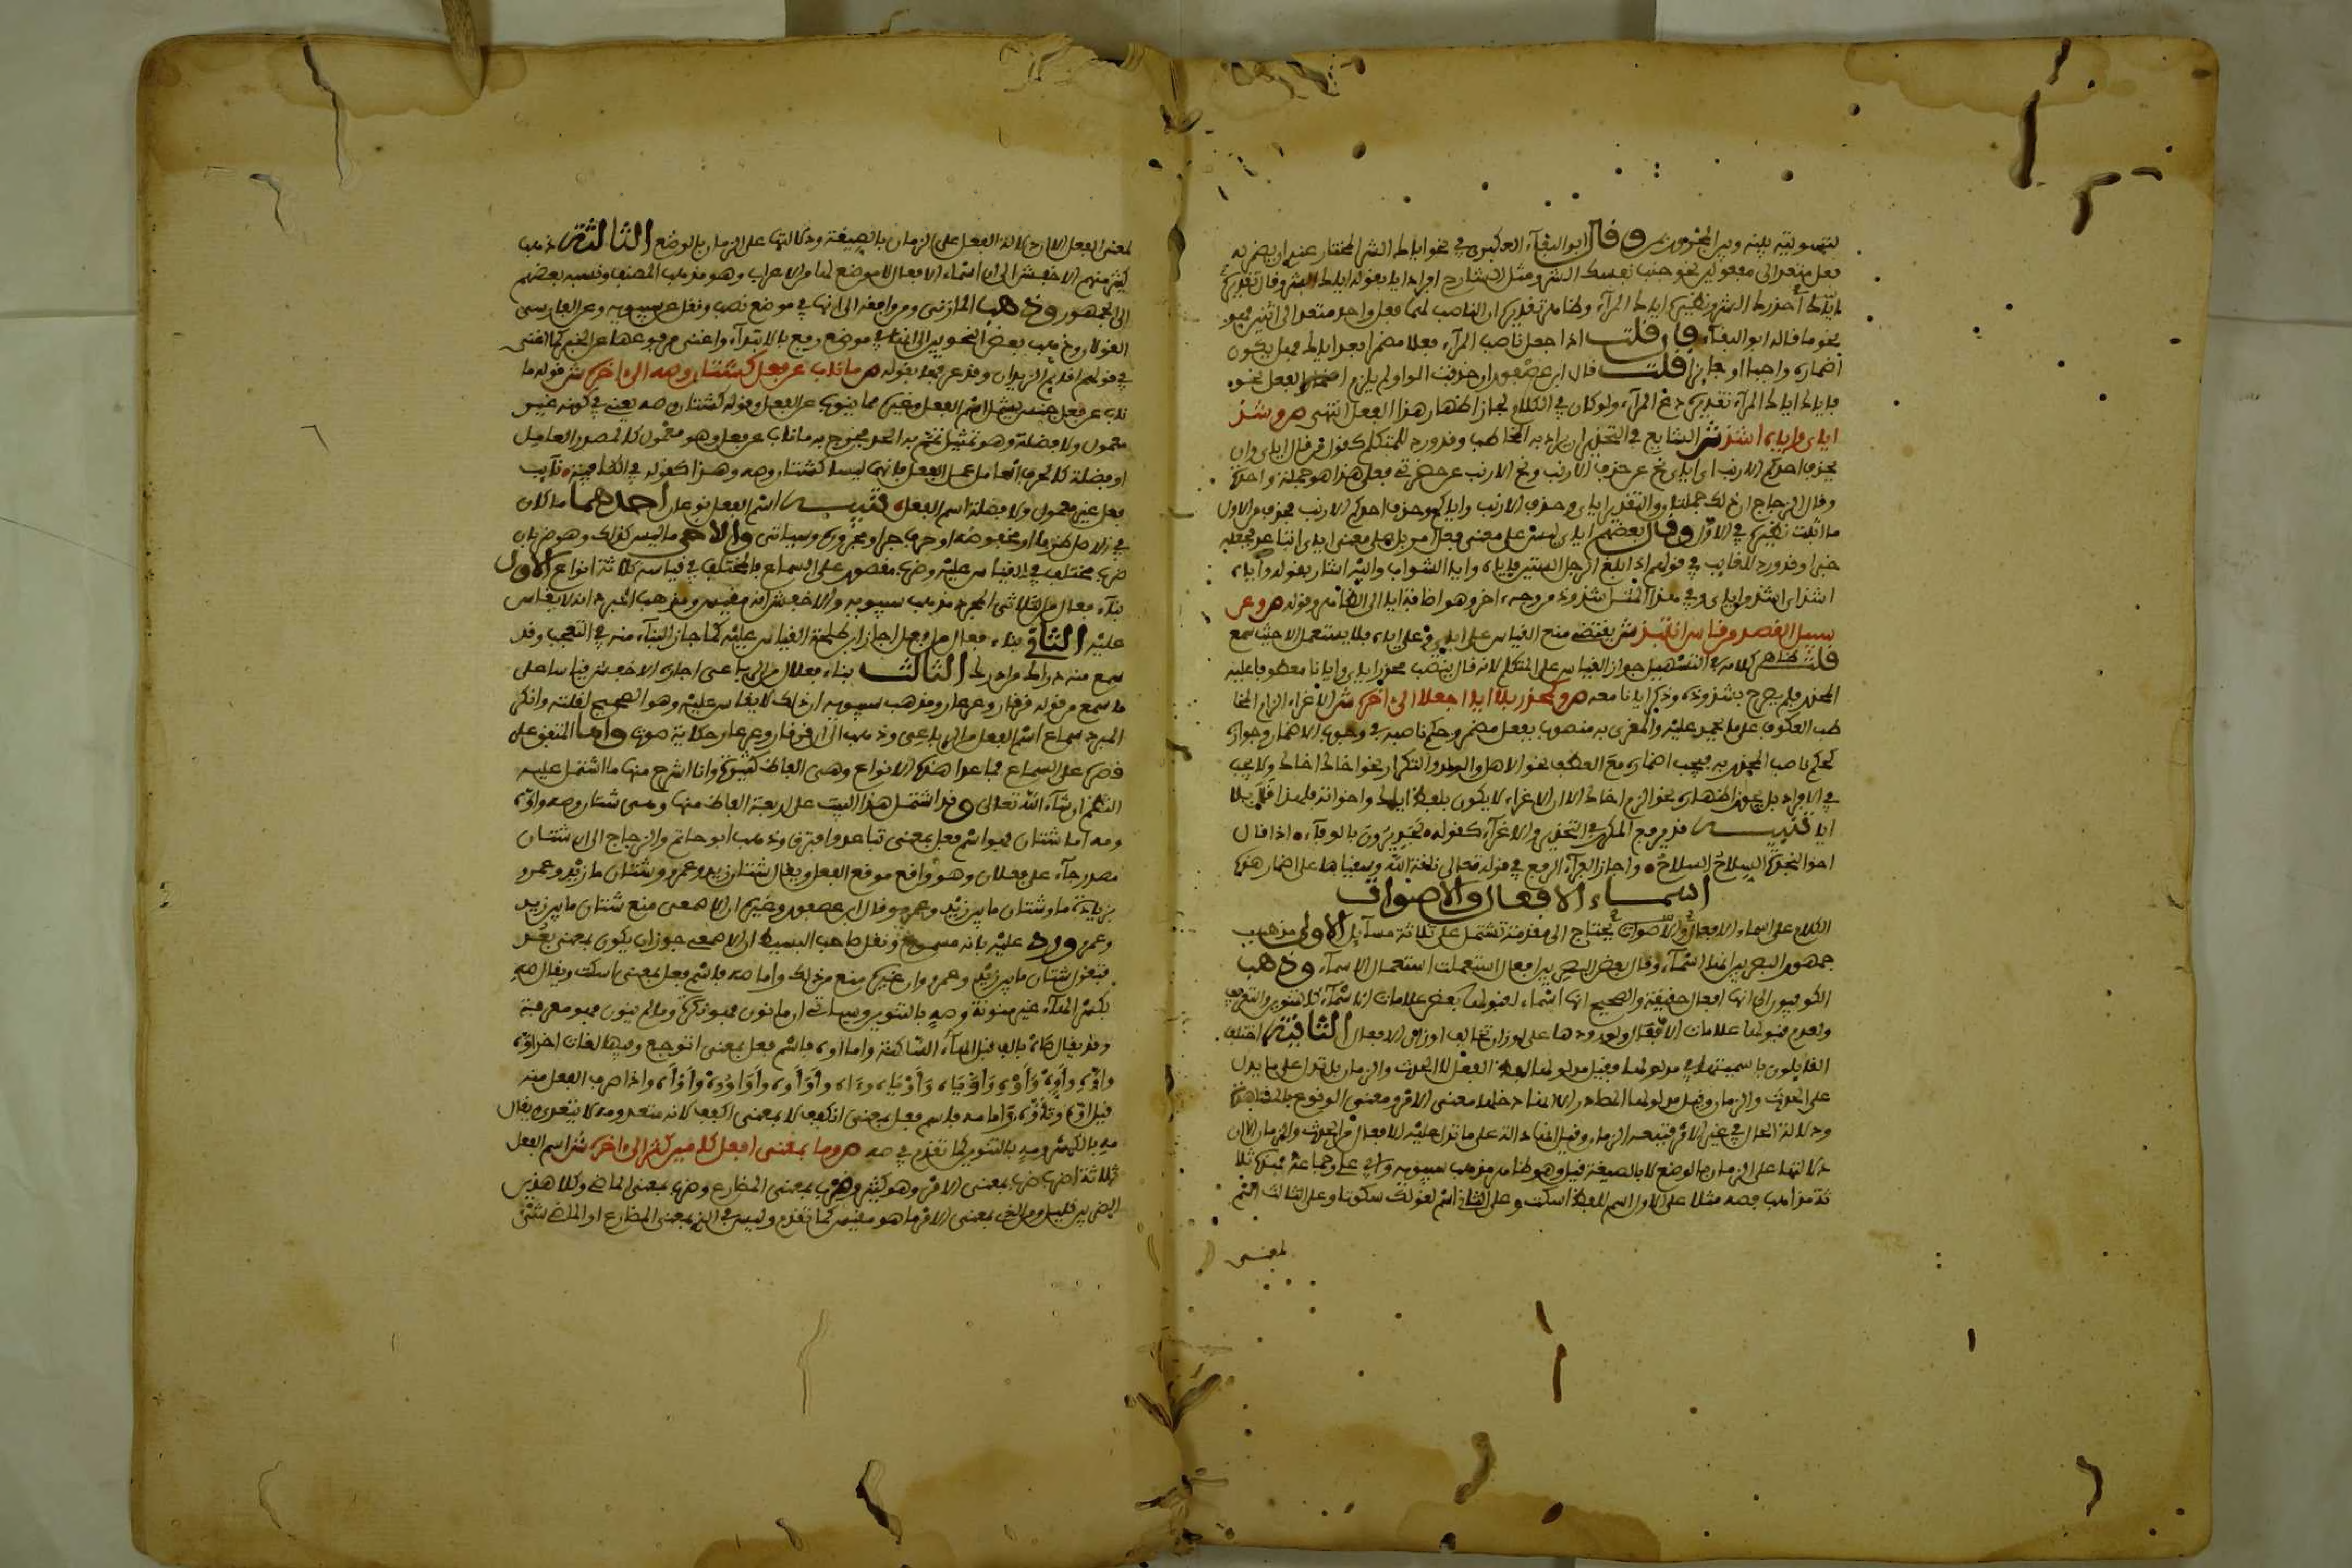 لتسويته بينه وبين المحذور منه وقال ابو البقآء العكبري في نحو اياك الشر المختار عندي ان يضمر له
فعل متعد الى مفعولين نحو جنب نفسك الشر ومثل الشارح افراد ايا بقوله اياك الشر وقال تقديره
اياك أحذرك الشر ونظيره اياك المرآء وظاهر تقديره ان الناصب لهما فعل واحد متعد الى اثنين فهو
نحو ما قاله ابو البقآء فان قلت اذا جعل ناصب المرآء فعلا مضمرا بعد اياك فهل يكون
اضماره واجبا او جايزا قلت قال ابن عصفور ان حذفت الواو لم يلزم اضمار الفعل نحو
فاياك اياك المرآء تقديره دع المرآء ولو كان في الكلام لجاز اظهار هذا الفعل انتهى ص وشذ
اياي واياه اشذ ش الشايع في التحذير ان يراد به المخاطب وقد ورد للمتكلم كقول عمر اياي وان
يحذف احدكم الارنب اي اياي نح عن حذف الارنب ونح الارنب عن حضرتي فعلى هذا هو جملة واحدة
وقال الزجاج ان ذلك جملتان والتقدير اياي وحذف الارنب واياكم وحذف احدكم الارنب فحذف من الاول
ما اثبت نظيره في الاول وقال بعضهم اياي ليس على معنى فعل امر بل على معنى اياي
خبرا وقد ورد للغايب في قولهم اذا بلغ الرجل الستين فاياه وايا الشواب واليه اشار بقوله واياه
اشذ اي اشذ من اياي وفي هذا المثل شذوذ من وجه اخر وهو اضافة ايا الى الظاهر وقوله ص وعن
سبيل القصد من قاس انتبذ ش يقتضي منع القياس على اياي وعلى اياه فلا يستعمل الا حيث سمع
قلت ظاهر كلامه في التسهيل جواز القياس على المتكلم لانه قال ينصب محذر اياي وايانا معطوفا عليه
المحذور فلم يصرح بشذوذه وذكر ايانا معه ص وكمحذر بلا ايا اجعلا الى اخره ش الاغراء الزام المخا
طب العكوف على ما يحمد عليه والمغرى به منصوب بفعل مضمر وحكم ناصبه في وجوب الاضمار وجوازه
كحكم ناصب المحذر به فيجب اضماره مع العطف نحو الاهل والولد والتكرار نحو اخاك اخاك ولا يجب
في الافراد بل يجوز اظهاره نحو الزم اخاك الا ان الاغراء لا يكون بلفظ اياك واخواته فلهذا قال بلا
ايا تنبيه قد يرفع المكرر في التحذير والاغرآء كقوله لجديرون بالوفآء اذا قال
اخو النجدة السلاح السلاح واجاز الفرآء الرفع في قوله تعالى ناقة الله وسقياها على اضمار هذه
اسماء الافعال والاصوات
الكلام على اسماء الافعال والاصوات يحتاج الى مقدمة تشتمل على ثلاثة مسآيل الاولى مذهب
جمهور البصريين انها اسمآء وقال بعض البصريين افعال استعملت استعمال الاسمآء وذهب
الكوفيون الى انها افعال حقيقة والصحيح انها اسماء لقبولها بعض علامات الاسمآء كالتنوين والتعريف
ولعدم قبولها علامات الافعال وورودها على اوزان تخالف اوزان الافعال الثانية اختلف
القايلون باسميتها في مدلولها فقيل مدلولها لفظ الفعل لا الحدث والزمان بل تدل على ما يدل
على الحدث والزمان وقيل مدلولها المصادر الا انها دخلها معنى الامر ومعنى الوقوع بالمشاهدة
ودلالة الحال في غير الامر فتتبعه الزمان وقيل انها دالة على ما تدل عليه الافعال من الحدث والزمان الا ان
دلالتها على الزمان بالوضع لا بالصيغة قيل وهو ظاهر مذهب سيبويه وابي علي وجماعة فهذه ثلا
ثة مذاهب فصه مثلا على الاول اسم للفظ اسكت وعلى الثاني اسم لقولك سكوتا وعلى الثالث اسم
لمعنى
لمعنى الفعل الا ان دلالة الفعل على الزمان بالصيغة ودلالتها على الزمان بالوضع الثالثة ذهب
كثير منهم الاخفش الى ان اسماء الافعال لا موضع لها من الاعراب وهو مذهب المصنف ونسبه بعضهم
الى الجمهور وذهب المازني ومن وافقه الى انها في موضع نصب ونقل عن سيبويه وعن الفارسي
القولان وذهب بعض النحويين الى انها في موضع رفع بالابتدآء واغنى مرفوعها عن الخبر كما اغنى
في قولهم اقايم الزيدان وقد عرفها بقوله ص ما ناب عن فعل كشتان وصه الى اخره ش قوله ما
ناب عن فعل جنس يشمل اسم الفعل وغيره مما ينوب عن الفعل وقوله كشتان وصه يعني في كونه غير
معمول ولا فضلة وهو تمثيل تتم به الحد فخرج به ما ناب عن فعل وهو معمول كالمصدر العامل
او فضلة كالحرف العامل عمل الفعل فانهما ليسا كشتان وصه وهذا كقوله في الكافية نايب
فعل غير معمول ولا فضلة اسم الفعل تنبيه اسم الفعل نوعان احدهما ما كان
في الاصل ظرفا او مخفوضه او حرف جر ومجروره وسياتي والاخر ما ليس كذلك وهو ضربان
ضرب مختلف في القياس عليه وضرب مقصور على السماع فالمختلف في قياسه ثلاثة انواع الاول
بنآء فعال من الثلاثي المجرد مذهب سيبويه والاخفش انه مقيس ومذهب المبرد انه لا يقاس
عليه الثاني بناء فعال من افعل اجاز ابن طلحة القياس عليه كما جاز البنآء منه في التعجب وقد
سمع منه دراك من ادرك الثالث بناء فعلال من الرباعي اجازه الاخفش قياسا على
ما سمع من قوله قرقار وعرعار ومذهب سيبويه ان ذلك لا يقاس عليه وهو الصحيح لقلته وانكر
المبرد سماع اسم الفعل من الرباعي وذهب الى ان قرقار وعرعار حكاية صوت واما المتفق على
قصره على السماع فما عدا هذه الانواع وهي الفاظ كثيرة وانا اشرح منها ما اشتمل عليه
النظم ان شآء الله تعالى وقد اشتمل هذا البيت على اربعة الفاظ منها وهي شتان وصه واوه
ومه اما شتان فهو اسم فعل بمعنى تباعد وافترق وذهب ابو حاتم والزجاج الى ان شتان
مصدر جآء على فعلان وهو واقع موقع الفعل ويقال شتان زيد وعمرو وشتان ما زيد وعمرو
بزيادة ما وشتان ما بين زيد وعمرو وقال ابن عصفور وغيره ان الاصمعي منع شتان ما بين زيد
وعمرو ورد عليه بانه مسموع ونقل صاحب البسيط ان الاصمعي جوز ان يكون بمعنى بعد
فتقول شتان ما بين زيد وعمرو وان غيره منع من ذلك واما صه فاسم فعل بمعنى اسكت ويقال صه
بكسر الهاء غير منونة وصه بالتنوين وسياتي ان ما نون فهو نكرة وما لم ينون فهو معرفة
وقد يقال صاه بالف قبل الهآء الساكنة واما اوه فاسم فعل بمعنى اتوجع وفيها لغات اخر
واذا صرف الفعل منه
قيل اوه وتاوه واما مه فاسم فعل بمعنى انكفف لا بمعنى اكفف لانه متعد ومه لا يتعدى يقال
مه بالكسر ومه بالتنوين كما تقدم في صه ص وما بمعنى افعل كامين كثر الى اخره ش اسم الفعل
ثلاثة اضرب ضرب بمعنى الامر وهو كثير وضرب بمعنى المضارع وضرب بمعنى الماضي وكلا هذين
الضربين قليل ومن الذي بمعنى الامر ما هو مقيس كما تقدم وليس في الذي بمعنى المضارع او الماضي شيء